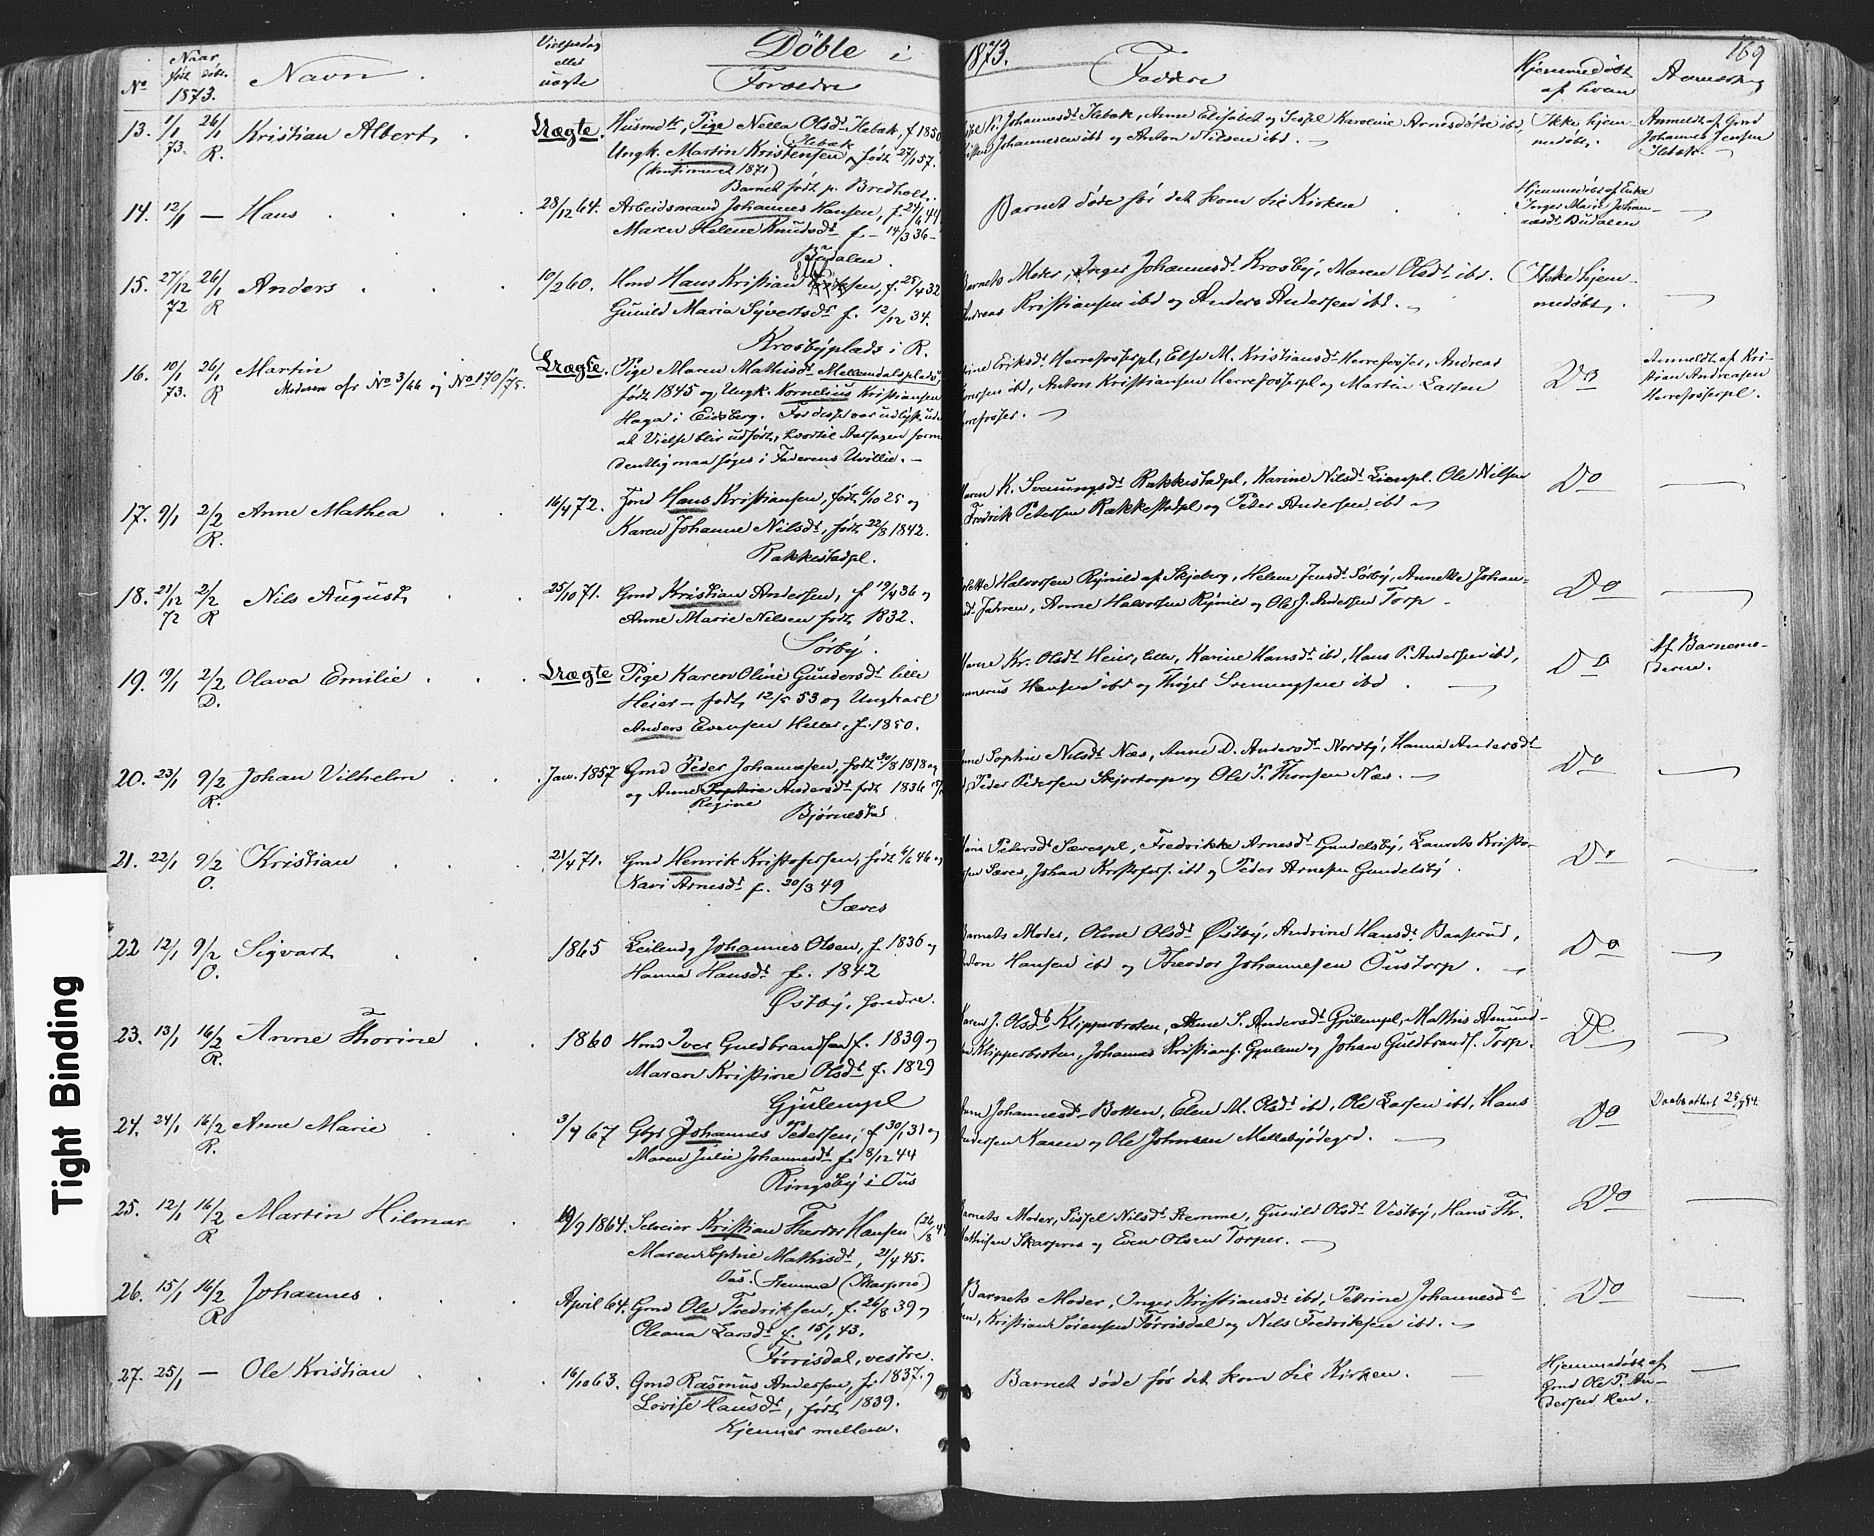 Döbte i 1873. 169
No
Naar
født døbt
1873.
Navn
Vielsesdag
eller
uægte
Forældre
Faddere
Hjemmedøbt
af hvem
13. 1/1 73. 26/1 R. Kristian Albert,
Uægte.
Husmdtr, Pige Nella Olsdr Ilebæk, f. 1850
Ungk. Martin Kristensen Ilebæk født 27/1 57.
(Konfirmeret 1871)
Barnet født p. Bredholt.
Johannesdr Ilebæk, Anne Elisabet og Karoline Arnesdøtre ibd,
Johannesen ibd og Anton Nilsen ibd.
Ikke hjem-
medøbt.
Anmeldt af Gmd
Johannes Jensen
Ilebæk.
14. 12/1 — Hans
28/12 64. Arbeidsmand Johannes Hansen, f. 24/6 44
Maren Helene Knudsdr f. 14/3 36
Budalen.
Barnet døde før det kom til Kirken
Hjemmedøbt af Enke
Inger Marie Johan-
nesdr Budalen
15. 27/12 72 26/1 R Anders
10/2 60. Hmd Hans Kristian Ellefsen, f. 25/4 32
Gunild Maria Syvertsdr f. 12/12 34.
Krosbyplads i R.
Barnets Moder, Inger Johannesdr Krosby, Maren Olsdr ibd.
Kristiansen ibd og Anders Andersen ibd.
Ikke hjem-
medøbt.
16. 10/1 73. 26/1 R Martin
No 3/46 og No 170/75.
Uægte. Pige Maren Mathisdr Mellemdalsplads,
født 1845 og Ungk. Kornelius Kristiansen
Haga i Eidsberg. For disse var udlyst uden
at Vielse blev udført, hvortil Aarsagen formo-
dentlig maa søges i Faderens Uvillie.
Eriksdr Herrefosserpl, Else M. Kristiansdr Herrefosser, Andreas
ibd, Anton Kristiansen Herrefosserpl og Martin Larsen
Herrefosser.
Do
Anmeldt af Kri-
stian Andreasen
Herrefosserpl.
17. 9/1 2/2 R. Anne Mathea
16/4 72. Hans Kristiansen, født 6/10 25 og
Karen Johanne Nilsdr, født 22/8 1842.
Rakkestadpl.
Maren K. Svenungsdr Rakkestadpl, Karine Nilsdr Lienpl. Ole Nilsen
Fredrik Petersen Rakkestadpl og Peder Andersen ibd
Do
18. 21/12 72 2/2 R Nils August,
25/10 71. Gmd Kristian Andersen, f 19/4 36 og
Anne Marie Nilsen født 1832.
Sørby.
Halvorsen Rynild af Skjeberg, Helene Jensdr Sørby, Annette Johan-
Jahren, Anne Halvorsen Rynild og Ole J. Andersen Torp
Do
19. 19/1 2/2 D. Olava Emilie
Uægte Pige Karen Oline Gundersdr lille
Heier — født 12/5 53 og Ungkarl
Anders Evensen Heller, f. 1850.
Kr. Olsdr Heier, lille, Karine Hansdr ibd, Hans P. Andersen ibd,
Hansen ibd og Thøger Svenungsen ibd
Do
Af Barnemo-
deren.
20. 23/1 9/2 R. Johan Vilhelm
Jan. 1857 Gmd Peder Johannesen, født 30/8 1818 og
og Anne Sophie Andersdr født 1836
Regine
Bjørnestad
Sophie Nilsdr Næs, Anne D. Andersdr Nordby, Hanna Andersdr
Peder Pedersen Skjortorp og Ole P. Thomsen Næs.
Do
21. 22/1 9/2 O. Kristian
21/4 71. Gmd Henrik Kristofersen, født 6/6 46 og
Navi Arnesdr f. 20/3 49
Sæves
Maria Petersdr Sævespl, Fredrikke Arnesdr Gundelsby, Laurits Kristo-
fersen Sæves, Johan Kristofers. ibd og Peder Arnesen Gundelsby
Do
22 12/1 9/2 O. Sigvart
1865 Leilendg Johannes Olsen, f. 1836 og
Hanna Hansdr f. 1842
Østby, søndre.
Barnets Moder, Oline Olsdr Østby, Andrine Hansdr Baaserud,
Hansen ibd og Theodor Johannesen Oustorp.
Do
23. 13/1 16/2 R. Anne Thorine
1860 Hmd Iver Guldbrandsen f. 1839 og
Maren Kristine Olsdr f. 1829
Gjulempl
Karen J. Olsdr Klipperbroten, Anne S. Andersdr Gjulempl, Mathis Amund-
sen Klipperbroten, Johannes Kristians. Gjulem og Johan Guldbrands. Torp.
Do
24. 24/1 16/2 R. Anne Marie
3/4 67 Gbgr Johannes Pedersen, f 30/1 31 og
Maren Julie Johannesdr f. 8/12 44
Ringsby i Ous
Johannesdr Botten, Elen M. Olsdr ibd, Ole Larsen ibd, Hans
Andersen Karen og Ole Johnsen Mellebyødegrd.
Do
Daabsattest
25. 12/1 16/2 R Martin Hilmar
19/9 1864. Selveier Kristian Theodor Hansen (26/8 4
Maren Sophie Mathisdr, 21/4 45.
Ous. (Hemme (Skarpsno)
Barnets Moder, Sissel Nilsdr Hemme, Gunild Olsdr Vestby, Hans Th.
Mathisen Skarpsno og Even Olsen Torper.
Do
26. 15/1 16/2 R Johannes
April 64. Gmd Ole Fredriksen, f. 26/8 39 og
Oleana Larsdr f. 15/1 43.
Førrisdal, vestre.
Barnets Moder, Inger Kristiansdr ibd, Petrine Johannesdr
Kristian Sørensen Førrisdal og Nils Fredriksen ibd.
Do
27. 25/1 — Ole Kristian
16/10 63. Gmd Rasmus Andersen, f. 1837. og
Lovise Hansdr, født 1839.
Kjenner mellem.
Barnet døde før det kom til Kirken.
Hjemmedøbt af
Gmd Ole P. An-
dersen
Tight Binding